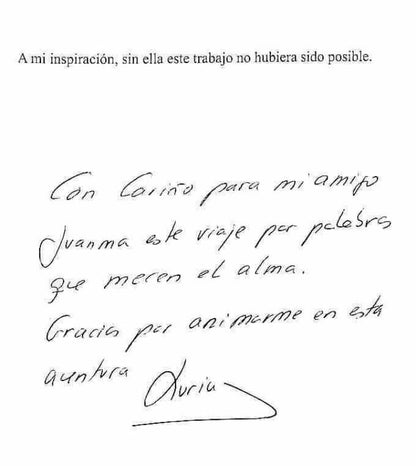 A mi inspiración, sin ella este trabajo no hubiera sido posible.
Con Cariño para mi amigo
Juanma este viaje por palabras
que mecen el alma.
Gracias por animarme en esta
aventura